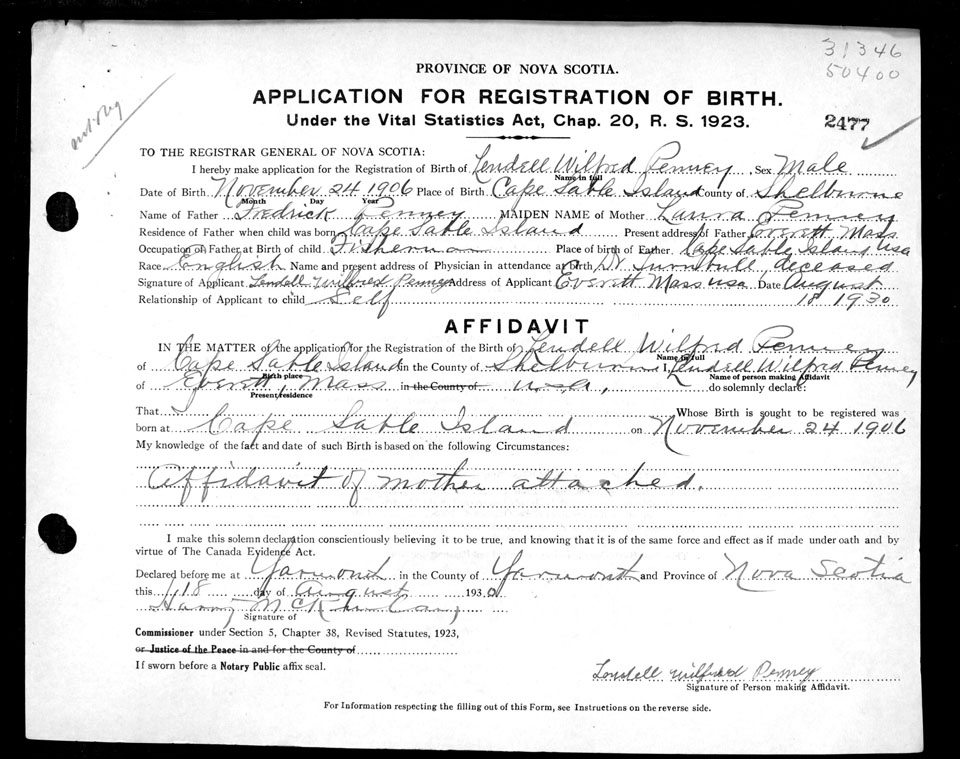 31346
50400
PROVINCE OF NOVA SCOTIA.
APPLICATION FOR REGISTRATION OF BIRTH.
Under the Vital Statistics Act, Chap. 20, R. S. 1923.
2477
TO THE REGISTRAR GENERAL OF NOVA SCOTIA:
I hereby make application for the Registration of Birth of Lendell Wilfred Penney, Sex Male
Name in full
Date of Birth November 24 1906 Place of Birth Cape Sable Island County of Shelbourne
Month Day Year
Name of Father Fredrick Penney MAIDEN NAME of Mother Laura Penney
Residence of Father when child was born Cape Sable Island Present address of Father Everett Mass
Occupation of Father at Birth of child Fisherman Place of birth of Father Cape Sable Island USA
Race English Name and present address of Physician in attendance at birth Dr Turnbull, deceased
Signature of Applicant Lendell Wilfred Penney Address of Applicant Everett Mass USA Date August
Relationship of Applicant to child Self 18 1930
AFFIDAVIT
IN THE MATTER of the application for the Registration of the Birth of Lendell Wilfred Penney
Name in full
of Cape Sable Island in the County of Shelburne I, Lendell Wilfred Penney
Birth place Name of person making Affidavit
of Everett, Mass in the County of U.S.A, do solemnly declare:
Present residence
That Whose Birth is sought to be registered was
born at Cape Sable Island on November 24 1906
My knowledge of the fact and date of such Birth is based on the following Circumstances:
Affidavit of mother attached.
I make this solemn declaration conscientiously believing it to be true, and knowing that it is of the same force and effect as if made under oath and by
virtue of The Canada Evidence Act.
Declared before me at Yarmouth in the County of Yarmouth and Province of Nova Scotia
this 18 day of August 1930
Harry
Signature of
Commissioner under Section 5, Chapter 38, Revised Statutes, 1923,
or Justice of the Peace in and for the County of
If sworn before a Notary Public affix seal.
Lendell Wilfred Penney
Signature of Person making Affidavit.
For Information respecting the filling out of this Form, see Instructions on the reverse side.